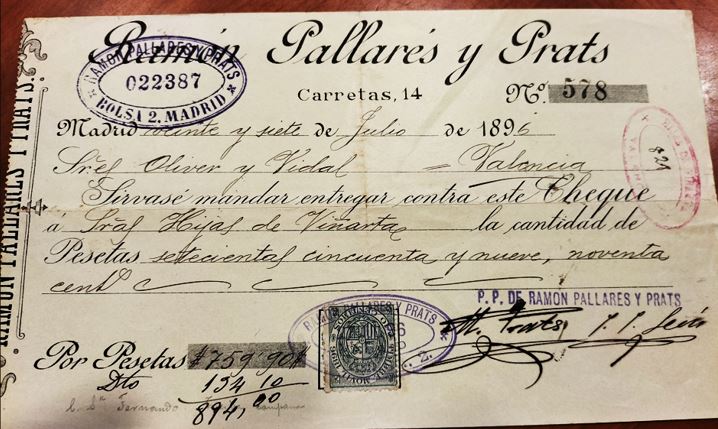 Ramón Pallarés y Prats
RAMON PALLARES Y PRATS
022387
BOLSA 2. MADRID
Carretas, 14
Nº 578
Madrid veinte y siete de Julio de 1896
Sres Oliver y Vidal = Valencia
Sírvase mandar entregar contra este Cheque
á Sras Hijas de Viñarta la cantidad de
Pesetas setecientas cincuenta y nueve, noventa
cents
P. P. DE RAMON PALLARES Y PRATS
RAMON PALLARES Y PRATS
M. Prats
Por Pesetas #759'90#
Dto 134,10
894,00
Fernando
RAMON PALLARES Y PRATS.